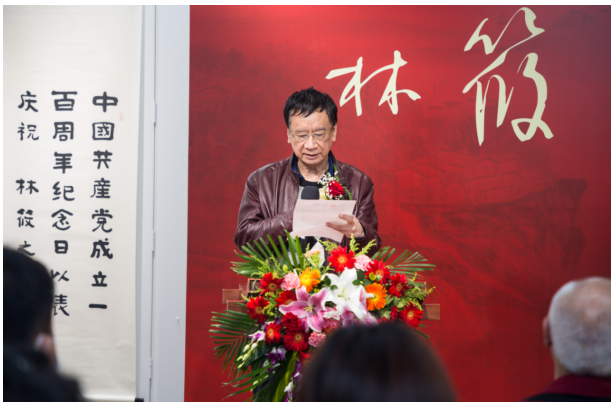 林筱
中國共産党成立一
百周年纪念日以表
庆祝 林筱之